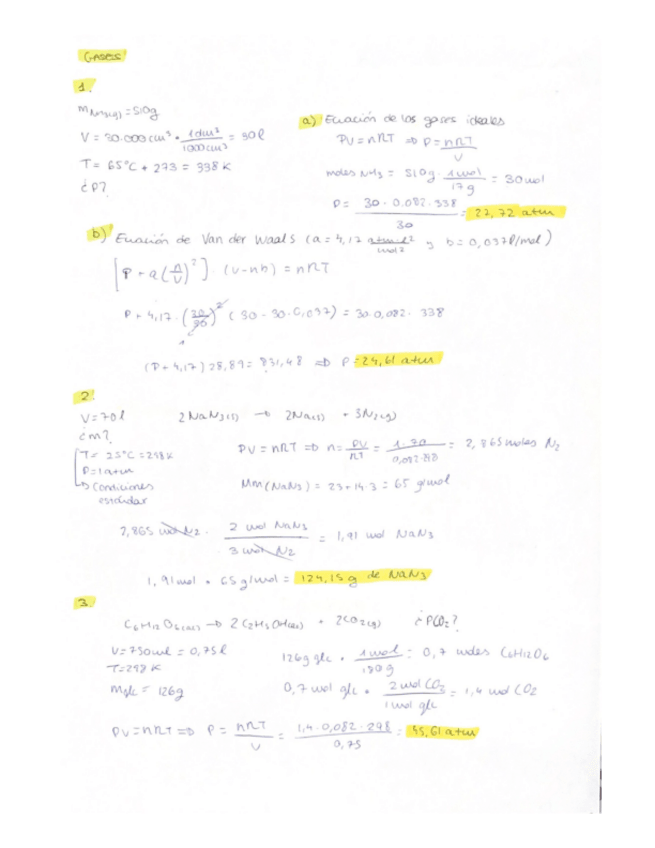 GASES
1.
m NH3(g) = 510g
V = 30.000 cm³ · 1dm³ / 1000cm³ = 30 l
T = 65°C + 273 = 338 K
¿P?
a) Ecuación de los gases ideales
PV = nRT ⇒ P = nRT / V
moles NH3 = 510g · 1mol / 17g = 30mol
P = 30 · 0,082 · 338 / 30 = 27,72 atm
b) Ecuación de Van der Waals (a = 4,17 atm·l² / mol² y b = 0,037 l/mol)
[P + a(n/V)²] · (V-nb) = nRT
P + 4,17 · (30/30)² (30 - 30·0,037) = 30·0,082 · 338
1
(P + 4,17) 28,89 = 831,48 ⇒ P = 24,61 atm
2.
V = 70 l
2NaN3(s) → 2Na(s) + 3N2(g)
¿m?
T = 25°C = 298K
P = 1 atm
Condiciones estándar
PV = nRT ⇒ n = PV / RT = 1 · 70 / 0,082·298 = 2,865 moles N2
Mm (NaN3) = 23 + 14·3 = 65 g/mol
2,865 mol N2 · 2 mol NaN3 / 3 mol N2 = 1,91 mol NaN3
1,91mol · 65 g/mol = 124,15 g de NaN3
3.
C6H12O6(ac) → 2 C2H5OH(ac) + 2CO2(g) ¿PCO2?
V = 750ml = 0,75 l
T = 298 K
mglc = 126g
126g glc · 1mol / 180g = 0,7 moles C6H12O6
0,7 mol glc · 2 mol CO2 / 1 mol glc = 1,4 mol CO2
PV = nRT ⇒ P = nRT / V = 1,4 · 0,082 · 298 / 0,75 = 45,61 atm